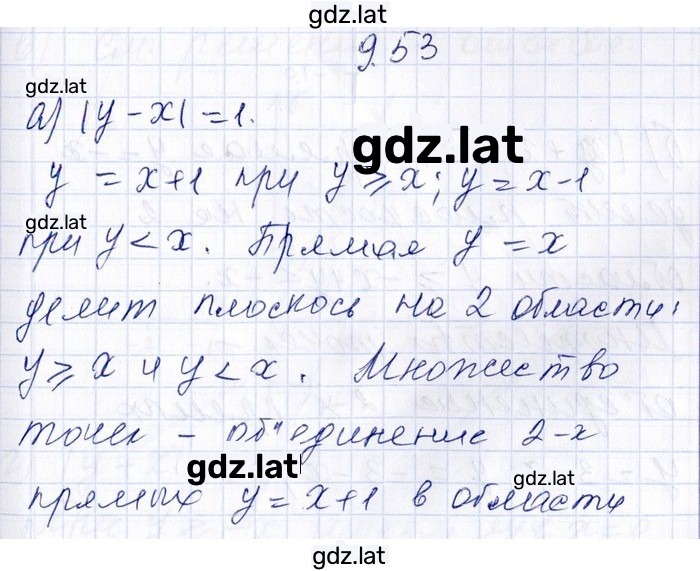 gdz.lat
9.53
gdz.lat
а) |y - x| = 1.
gdz.lat
y = x+1 при y ⩾ x; y = x-1
gdz.lat
при y < x. Прямая y = x
делит плоскось на 2 области:
y ⩾ x и y < x. Множество
точек - объединение 2-х
gdz.lat
gdz.lat
прямых y = x+1 в области
gdz.lat